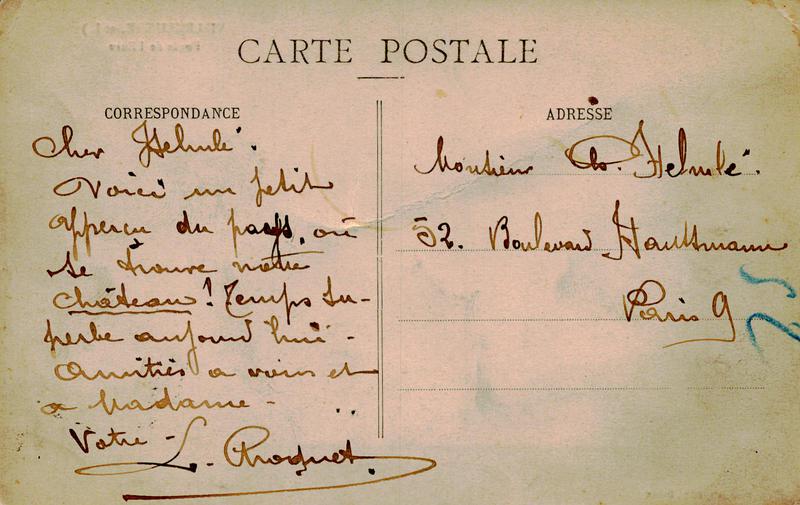 CARTE POSTALE
CORRESPONDANCE
Cher Helmlé.
Voici un petit
apperçu du pays, où
se trouve notre
château! Temps su-
perbe aujourd'hui -
Amitiés a vous et
a Madame -
Votre -
L.
ADRESSE
Monsieur Ch. Helmlé.
52. Boulevard Haussmann
Paris 9